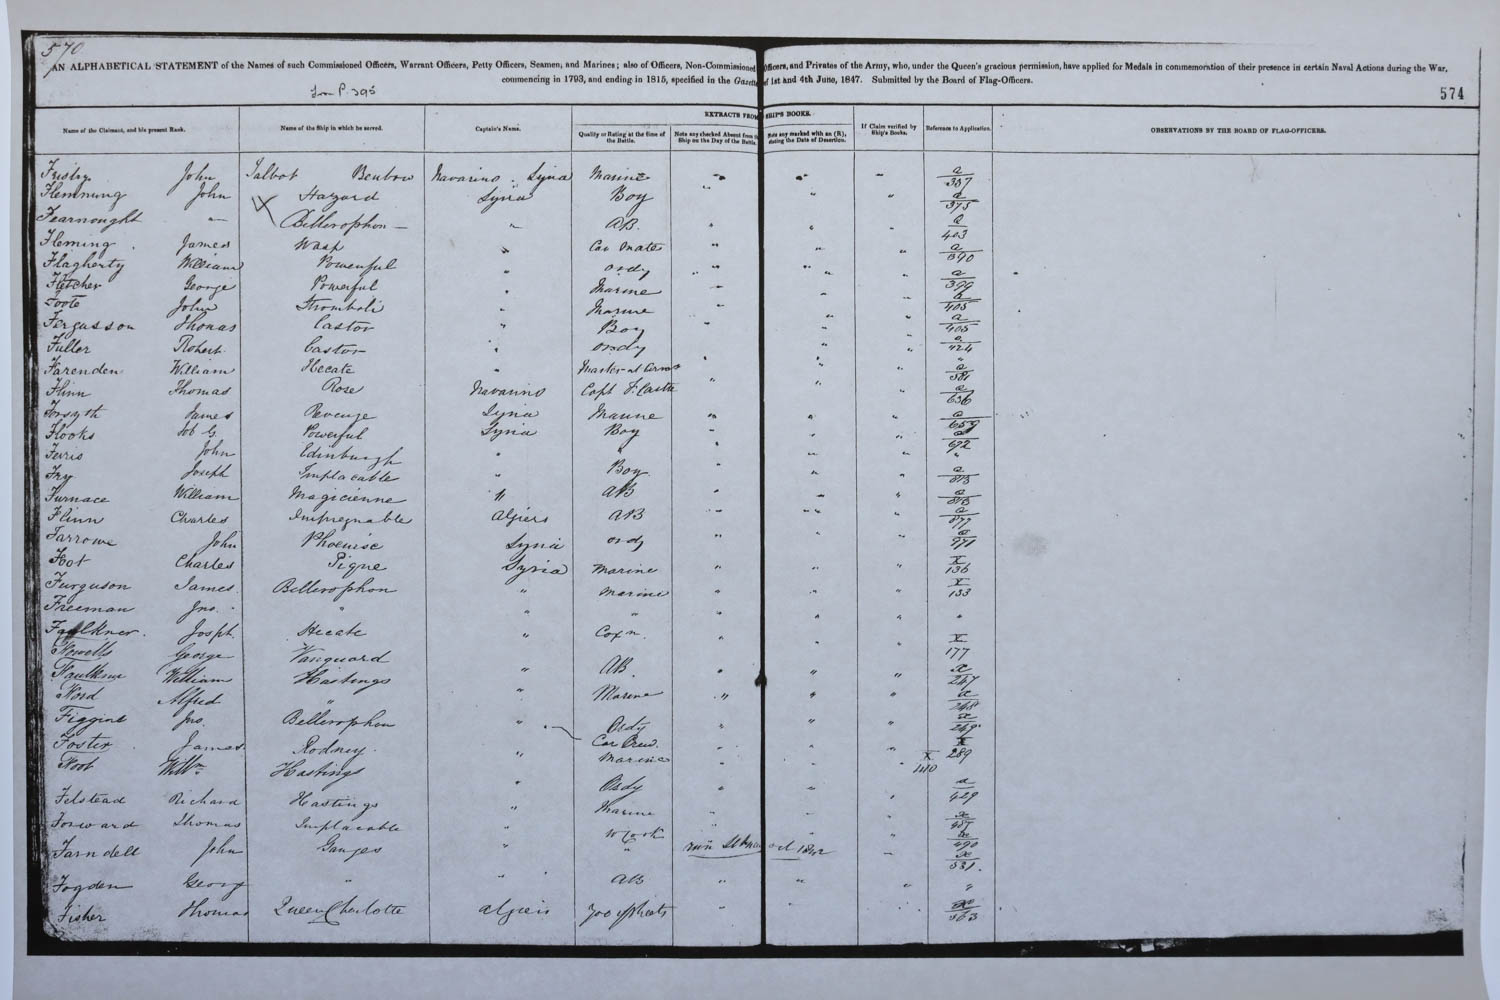 570
AN ALPHABETICAL STATEMENT of the Names of such Commissioned Officers, Warrant Officers, Petty Officers, Seamen, and Marines; also of Officers, Non-Commissioned Officers, and Privates of the Army, who, under the Queen's gracious permission, have applied for Medals in commemoration of their presence in certain Naval Actions during the War,
commencing in 1793, and ending in 1815, specified in the Gazette of 1st and 4th June, 1847. Submitted by the Board of Flag-Officers.
from P. 395
574
Name of the Claimant, and his present Rank. Name of the Ship in which he served. Captain's Name. EXTRACTS FROM SHIP'S BOOKS. If Claim verified by Ship's Books. Reference to Application. OBSERVATIONS BY THE BOARD OF FLAG-OFFICERS.
Quality or Rating at the time of the Battle. Note any checked Absent from the Ship on the Day of the Battle. Note any marked with an (R), during the Date of Desertion.
John Talbot Benbow Navarino . Syria Marine a/357
Flemming John Hazard Syria Boy a/375
Fearnought Bellerophon AB. a/403
Fleming James Wasp Car Mates a/390
Flagherty William Powerful ordy a/399
Fletcher George Powerful Marine a/405
Foote John Stromboli Marine a/405
Fergusson Thomas Castor Boy a/424
Fuller Robert Castor ordy "
Farenden William Hecate Master at Arms a/581
Flinn Thomas Rose Navarino Capt F. Castle a/636
Forsyth James Revenge Syria Marine a/659
Flooks Job G. Powerful Syria Boy a/692
Ferris John Edinburgh " "
Fry Joseph Implacable " Boy a/813
Furnace William Magicienne " AB a/813
Flinn Charles Impregnable Algiers AB a/877
Farrowe John Phoenix Syria ordy a/991
Foot Charles Pique Syria Marine X/136
Furguson James Bellerophon " Marine X/133
Freeman Jno. " " " "
Faulkner. Josph. Hecate " Coxn. X/177
George Vanguard " AB. a/247
Faulkner William Hastings " Marine a/248
Ford Alfred " a/249
Figgins Jno. Bellerophon " Ordy X/289
Foster James Rodney " Car Crew. X/410
Foot Willm Hastings Marine
Felstead Richard Hastings " Ordy a/429
Forward Thomas Implacable " Marine a/487
Farndell John Ganges " " run Oct 1842 a/531.
Fogden George " " AB "
Fisher Thomas Queen Charlotte Algiers